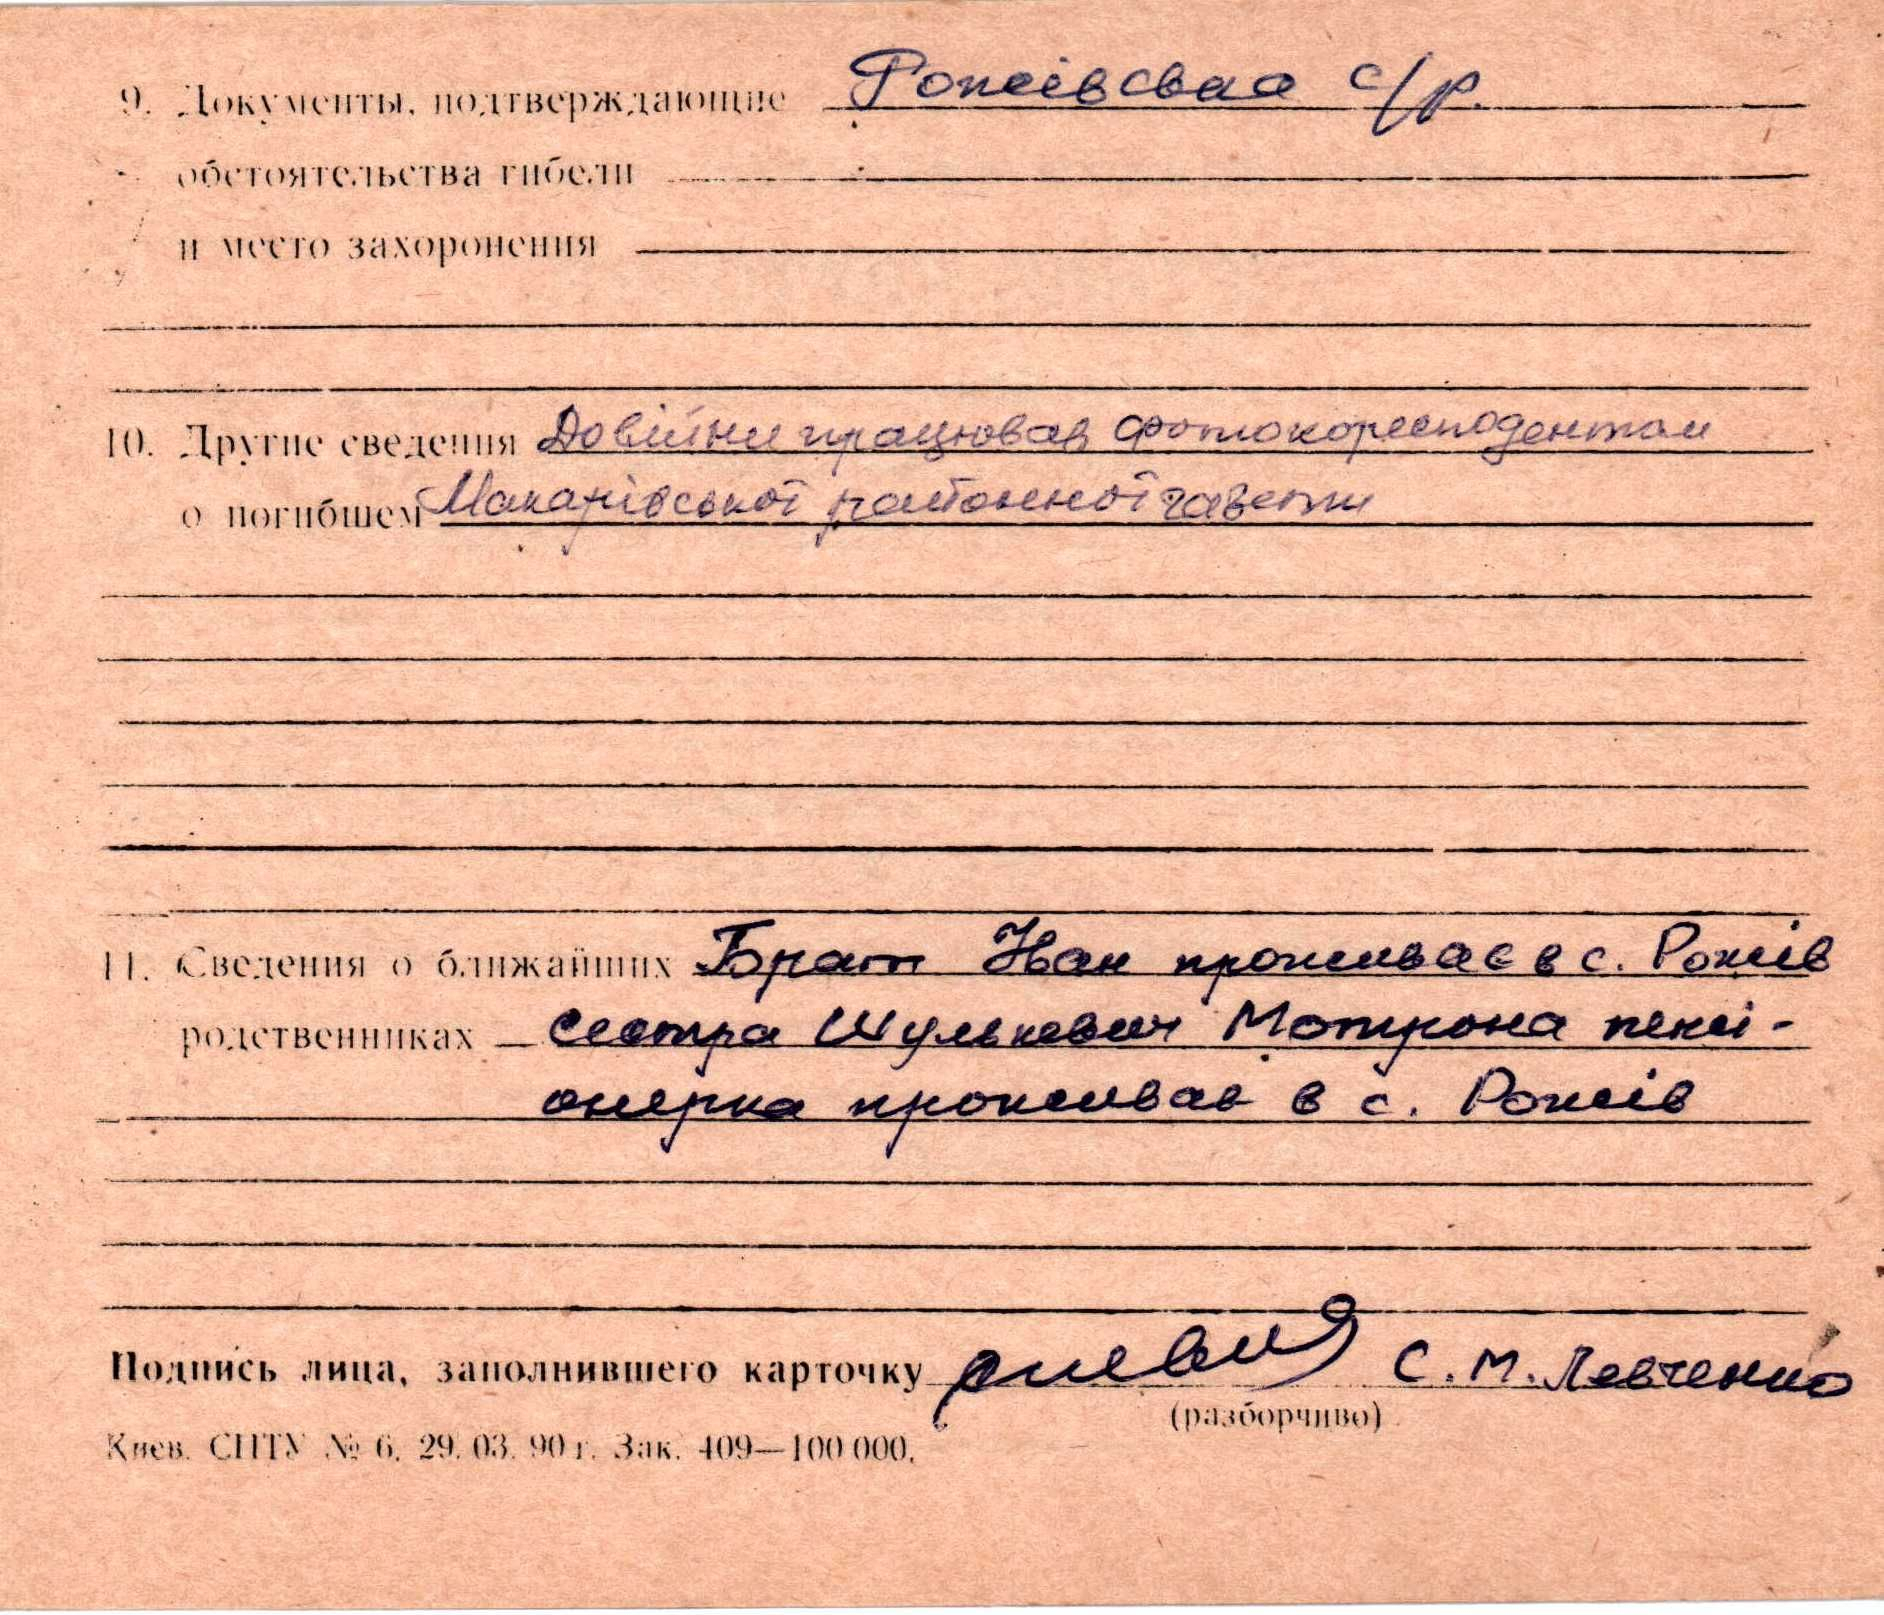 9. Документы, подтверждающие Рожівська с/р.
обстоятельства гибели
и место захоронения
10. Другие сведения Довійни працював фотокоресподентом
о погибшем Макарівської районної газети
11. Сведения о ближайших Брат Іван проживає в с. Рожів
родственниках сестра Шулькевич Мотрона пенсі-
онерка проживає в с. Рожів
Подпись лица, заполнившего карточку С.М. Левченко
(разборчиво)
Киев. СПТУ № 6. 29. 03. 90 г. Зак. 409—100 000.